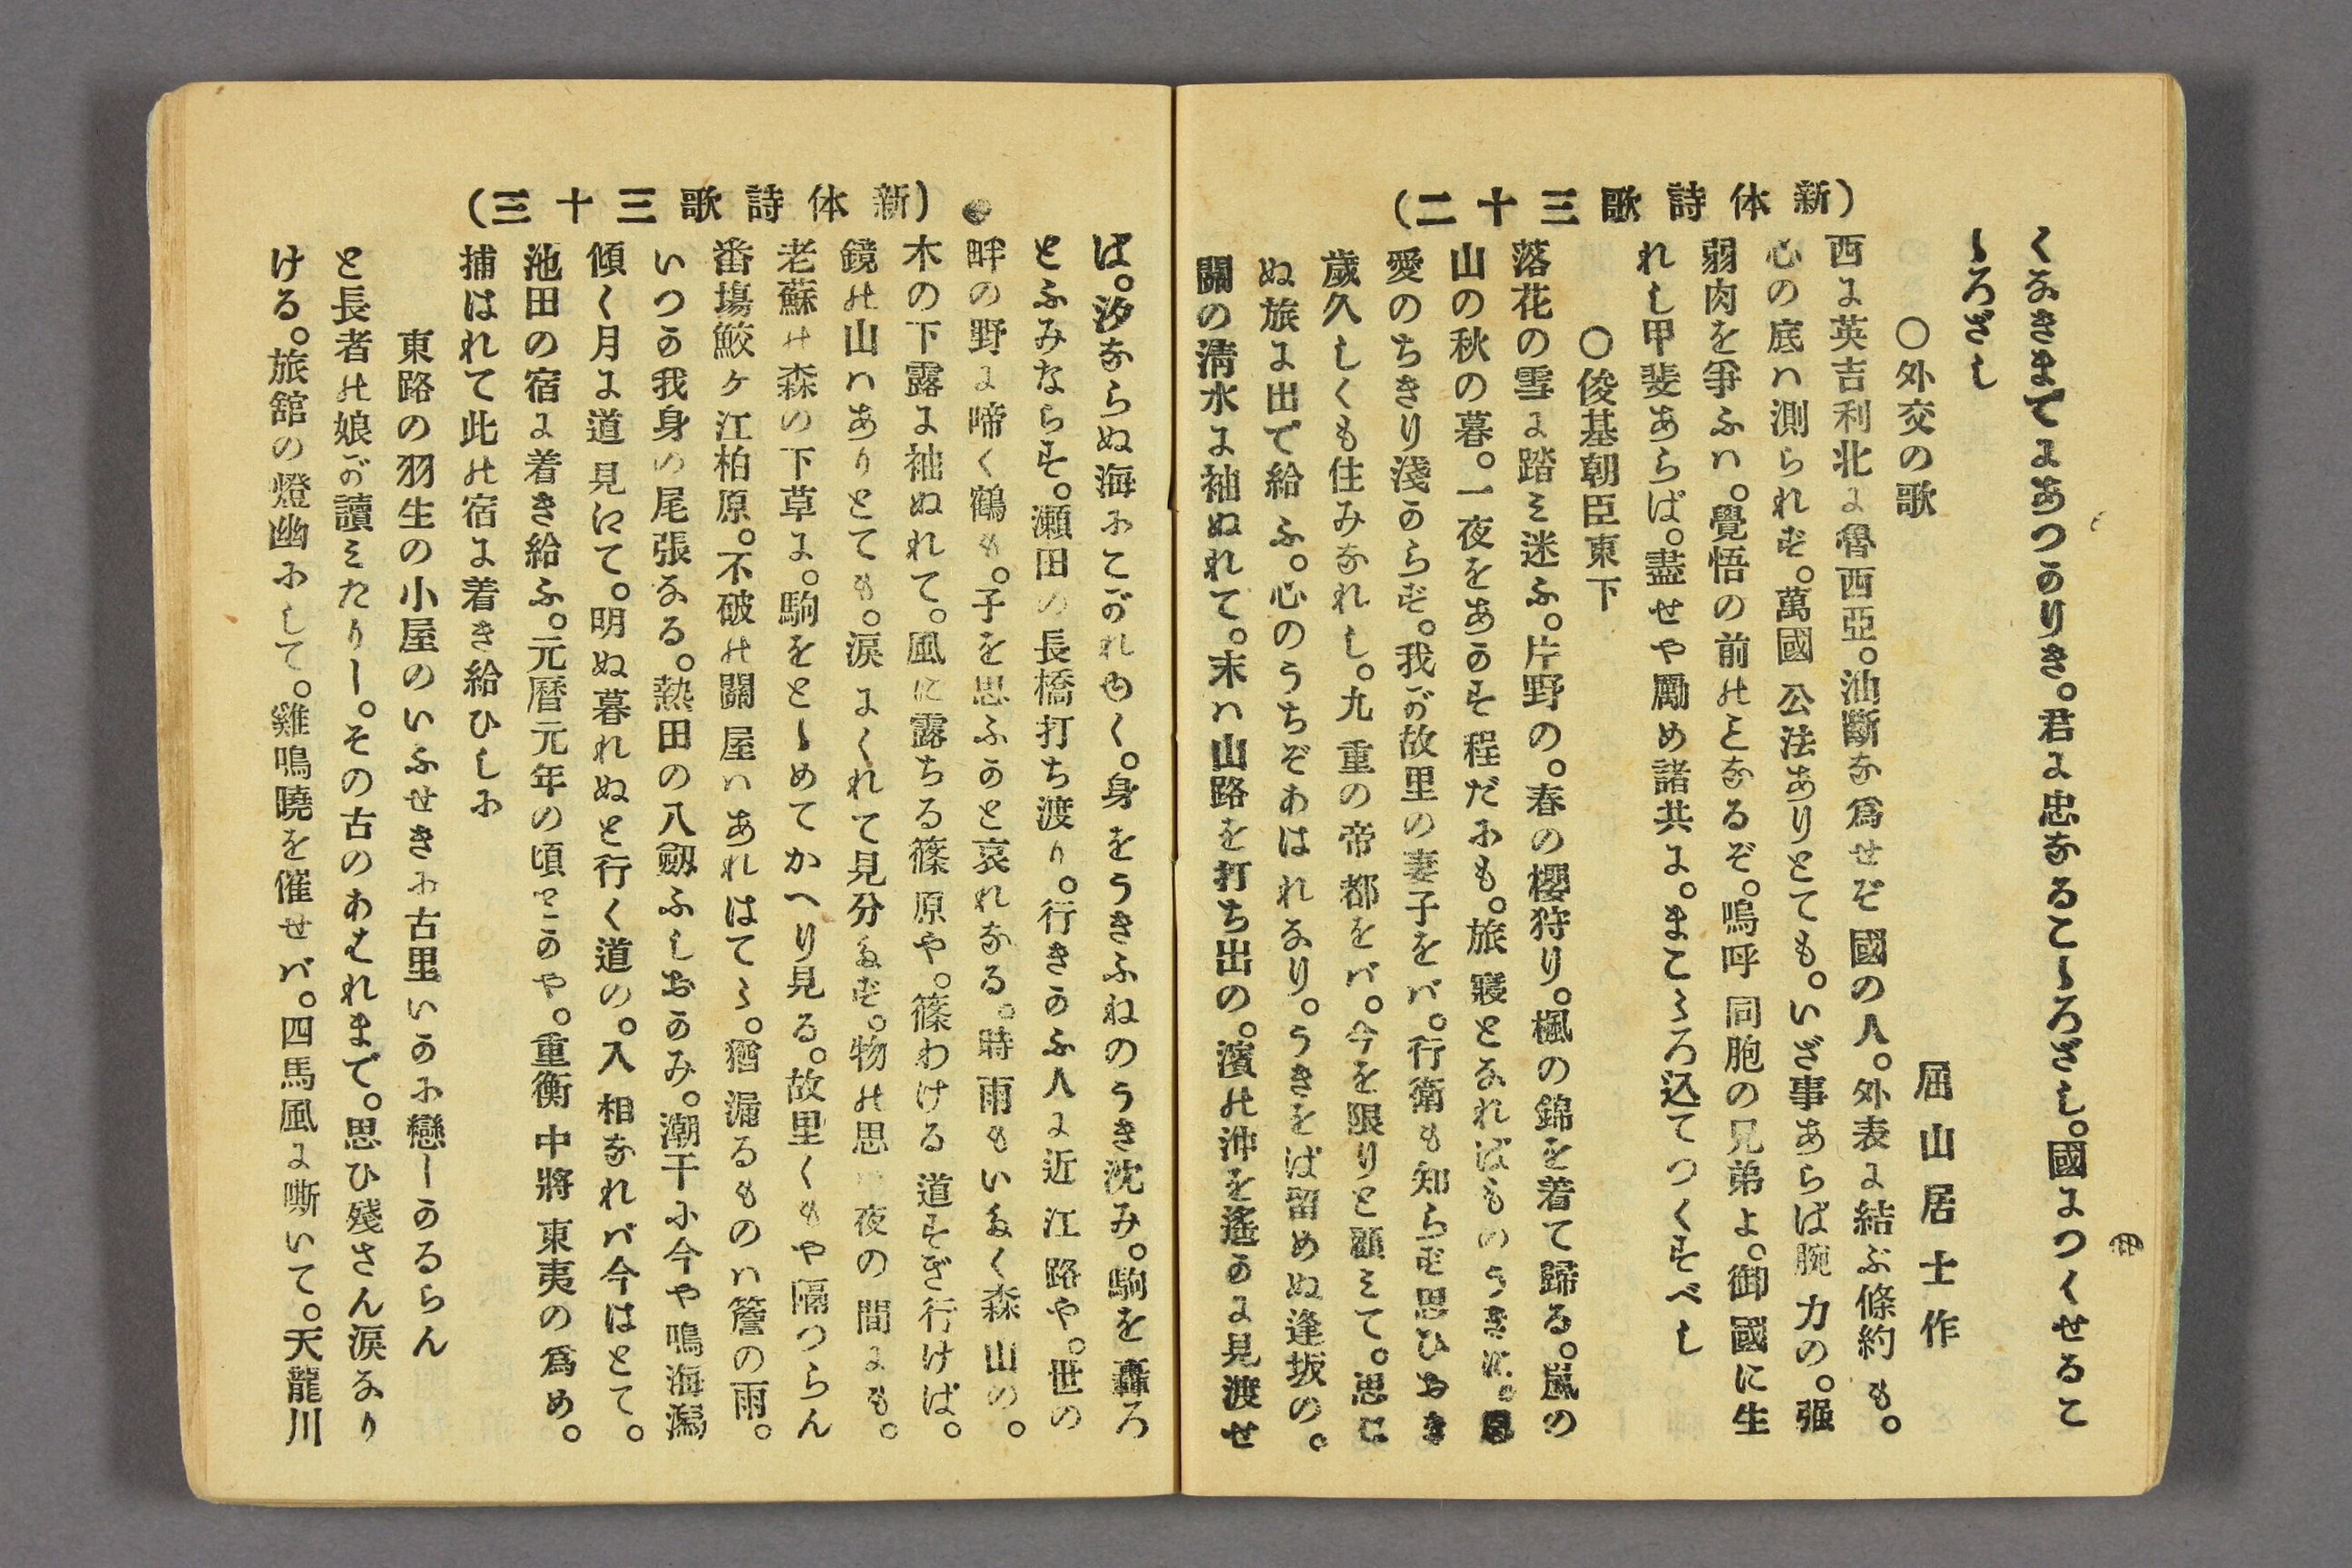 （新体詩歌三十二）
くなきまてにあつかりき。君に忠なるこゝろざし。國につくせるこ
ゝろざし
〇外交の歌
屈山居士作
西に英吉利北に魯西亞。油斷な爲せぞ國の人。外表に結ぶ條約も。
心の底ハ測られず。萬國公法ありとても。いざ事あらば腕力の。强
弱肉を爭ふハ。覺悟の前のことなるぞ。嗚呼同胞の兄弟よ。御國に生
れし甲斐あらば。盡せや勵め諸共に。まこゝろ込てつくすべし
〇俊基朝臣東下
落花の雪に踏ミ迷ふ。片野の。春の櫻狩り。楓の錦を着て歸る。嵐の
山の秋の暮。一夜をあかす程だにも。旅寢となればものうきに。
愛のちきり淺からず。我が故里の妻子をバ。行衛も知らず思ひおき
歲久しくも住みなれし。九重の帝都をバ。今を限りと顧ミて。思は
ぬ旅に出で給ふ。心のうちぞあはれなり。うきをば留めぬ逢坂の。
關の淸水に袖ぬれて。末ハ山路を打ち出の。濱の沖を遙かに見渡せ
（新体詩歌三十三）
ば。汐ならぬ海にこがれゆく。身をうきふねのうき沈み。駒を轟ろ
とふみならす。瀬田の長橋打ち渡り。行きかふ人に近江路や。世の
畔の野に啼く鶴も。子を思ふかと哀れなる。時雨もいたく森山の。
木の下露に袖ぬれて。風に露ちる篠原や。篠わける道すぎ行けば。
鏡の山ハありとても。涙にくれて見分たず。物の思ハ夜の間にも。
老蘇の森の下草に。駒をとゝめてかへり見る。故里くもや隔つらん
番塲鮫ヶ江柏原。不破の關屋ハあれはてゝ。猶漏るものハ簷の雨。
いつか我身の尾張なる。熱田の八劔ふしおかみ。潮干に今や鳴海潟
傾く月に道見にて。明ぬ暮れぬと行く道の。入相なれバ今はとて。
池田の宿に着き給ふ。元曆元年の頃とかや。重衡中將東夷の爲め。
捕はれて此の宿に着き給ひしに
東路の羽生の小屋のいふせきに古里いかに戀しかるらん
と長者の娘が讀ミたりし。その古のあはれまで。思ひ殘さん涙なり
ける。旅舘の燈幽にして。雞鳴曉を催せバ。四馬風に嘶いて。天龍川